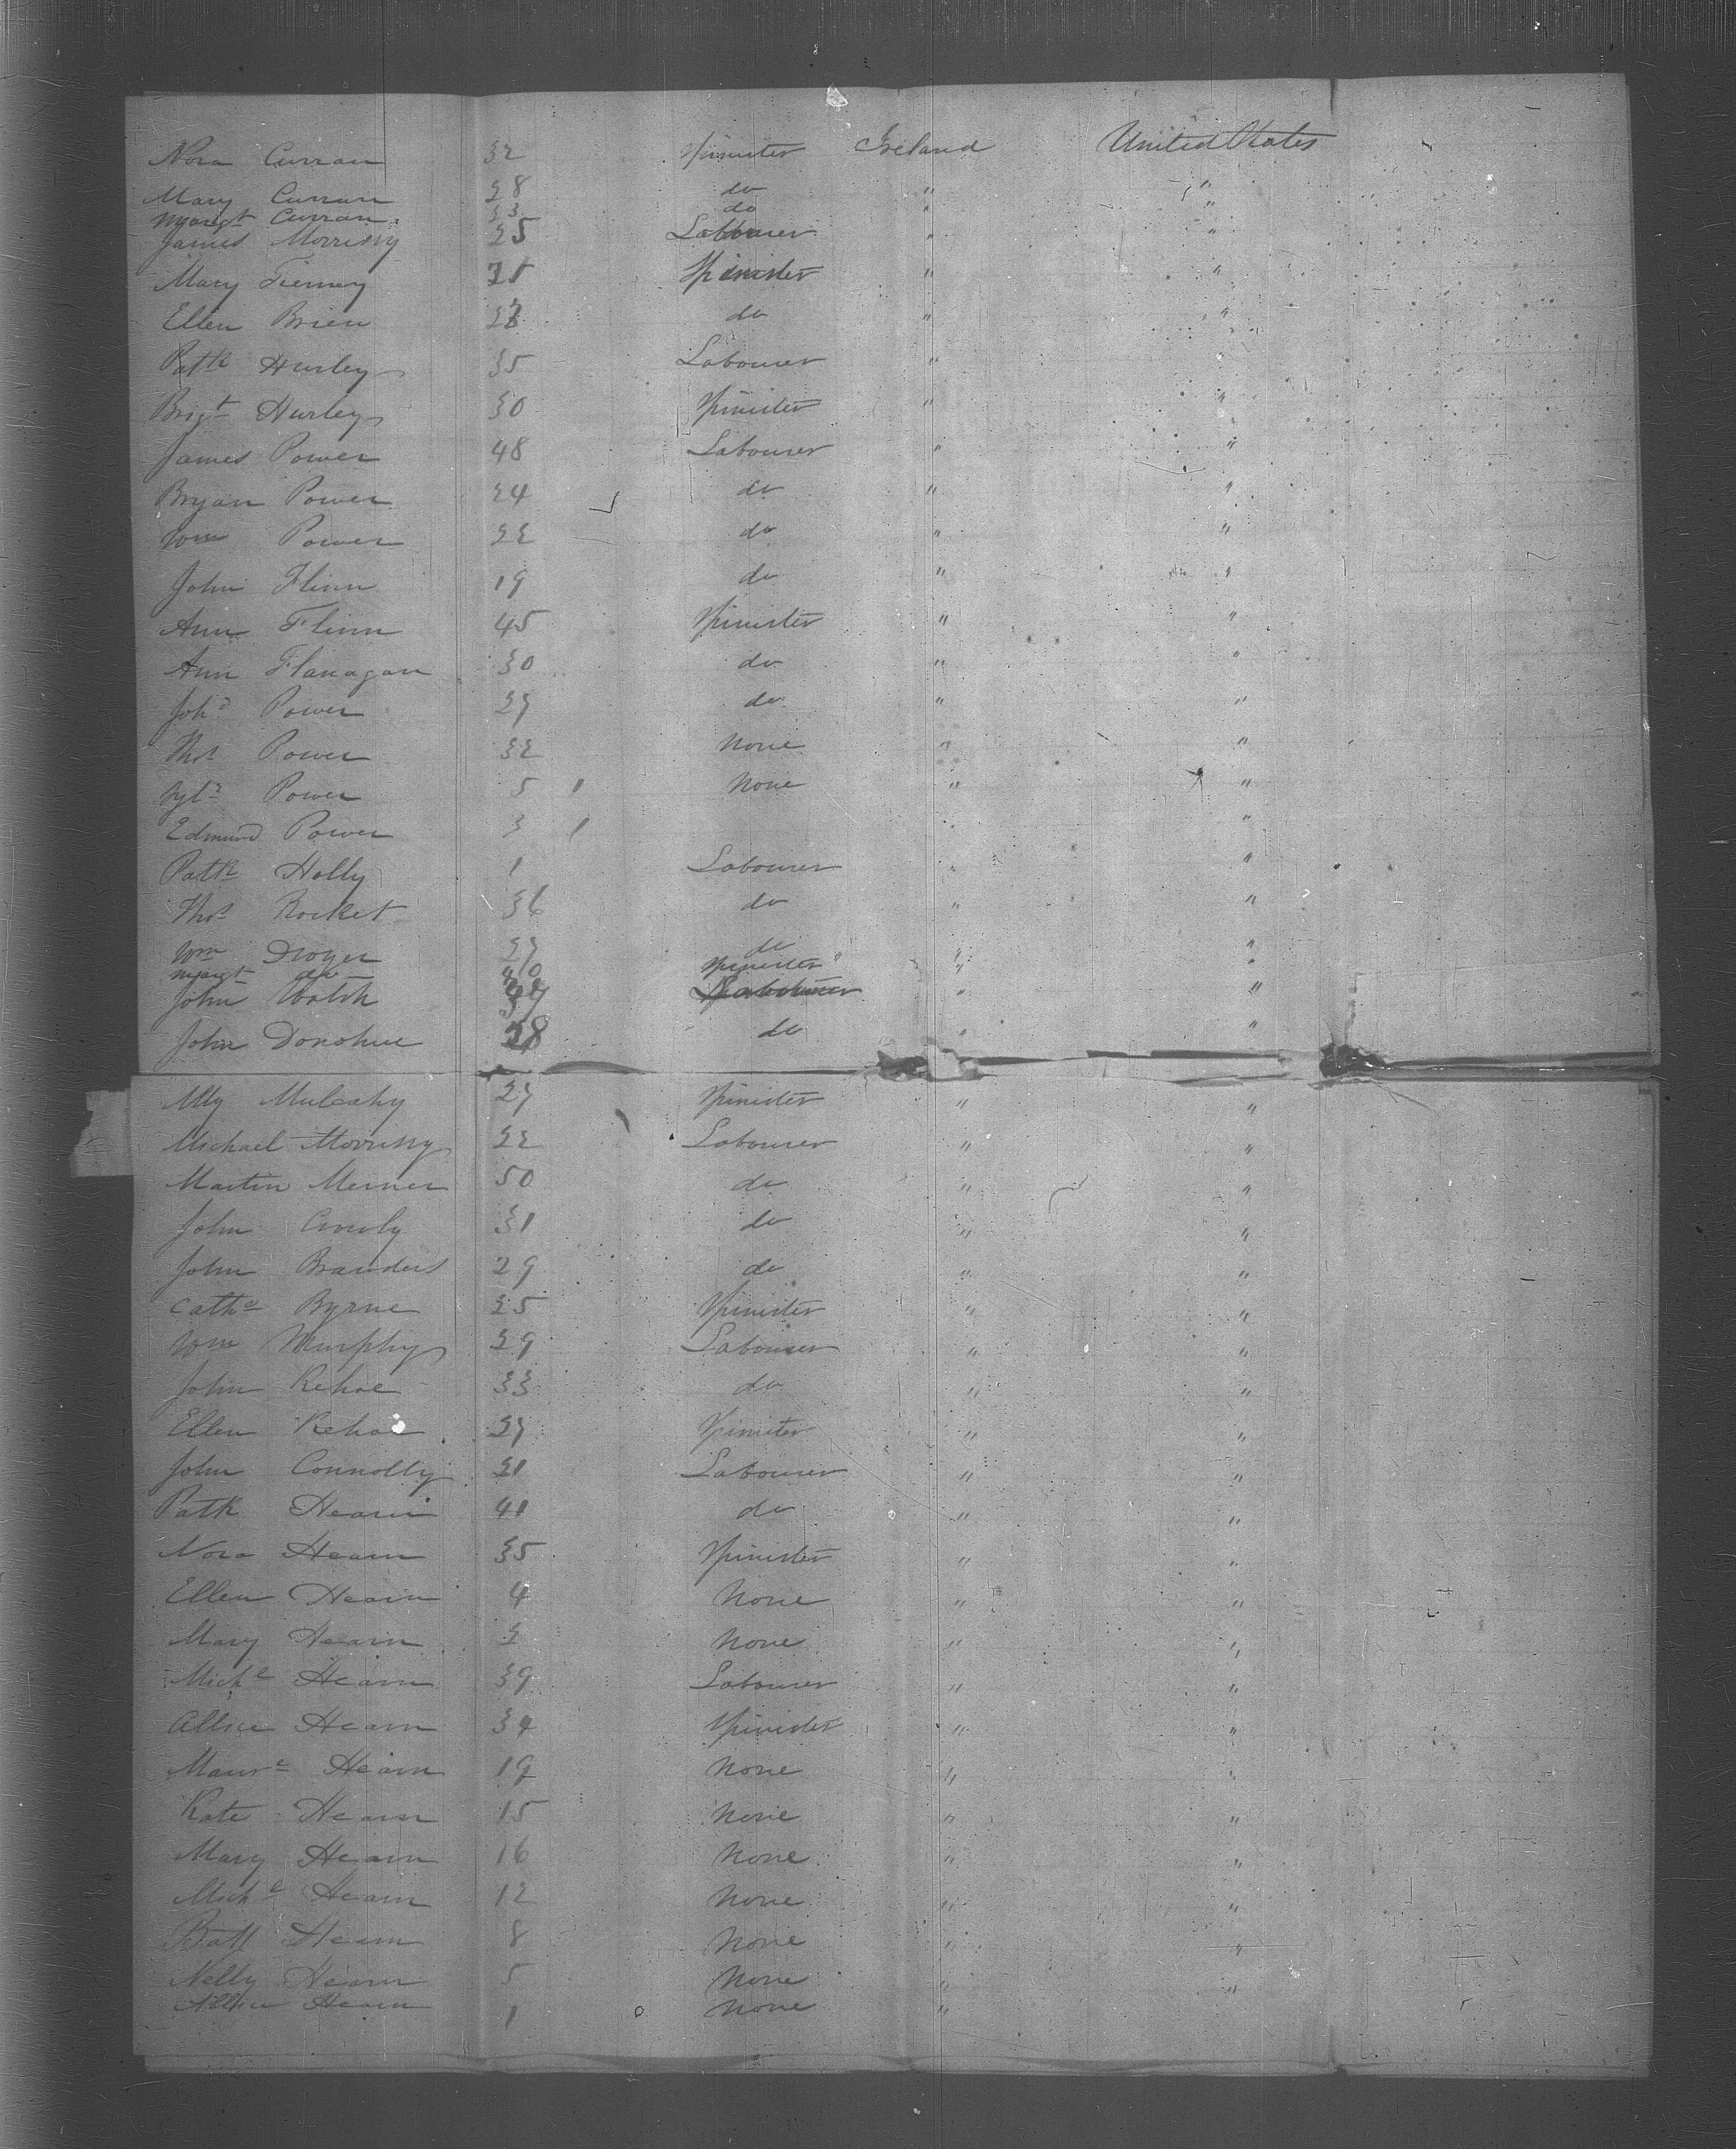 Nora Curran 32 Spinister Ireland United States
Mary Curran 28 do " "
Margt Curran 23 do " "
James Morrissy 25 Labourer " "
Mary Tierney 25 Spinister " "
Ellen Brien do " "
Patk Hurley 35 Labourer " "
Brigt Hurley 30 Spinister " "
James Power 48 Labourer " "
Bryan Power 24 do " "
Wm Power 22 do " "
John Flinn 19 do " "
Ann Flinn 45 Spinister " "
Ann Flanagan 30 do " "
Power 27 do " "
Thos Power 32 None " "
Power 5 None " "
Edmund Power 3 "
Patk Holly 1 Labourer " "
Thos Rocket 36 do " "
Wm Dwyer 27 do " "
Margt do Spinister " "
John Walsh Labourer " "
John Donohue 28 do " "
Mulcahy 27 Spinister " "
Michael Morrissy 22 Labourer " "
Martin Merner 50 do " "
John Crowly 31 do " "
John Branders 29 do " "
Cathe Byrne 25 Spinister " "
Wm Murphy 29 Labourer " "
John Kehoe 33 do " "
Ellen Kehoe 27 Spinister " "
John Connolly 21 Labourer " "
Patk Hearn 41 do " "
Nora Hearn 35 Spinister " "
Ellen Hearn 4 None " "
Mary Hearn 2 None " "
Miche Hearn 39 Labourer " "
Allice Hearn 34 Spinister " "
Maure Hearn 19 None " "
Kate Hearn 15 None " "
Mary Hearn 16 None " "
Miche Hearn 12 None " "
Batt Hearn 8 None " "
Nelly Hearn 5 None " "
Allice Hearn 1 None "